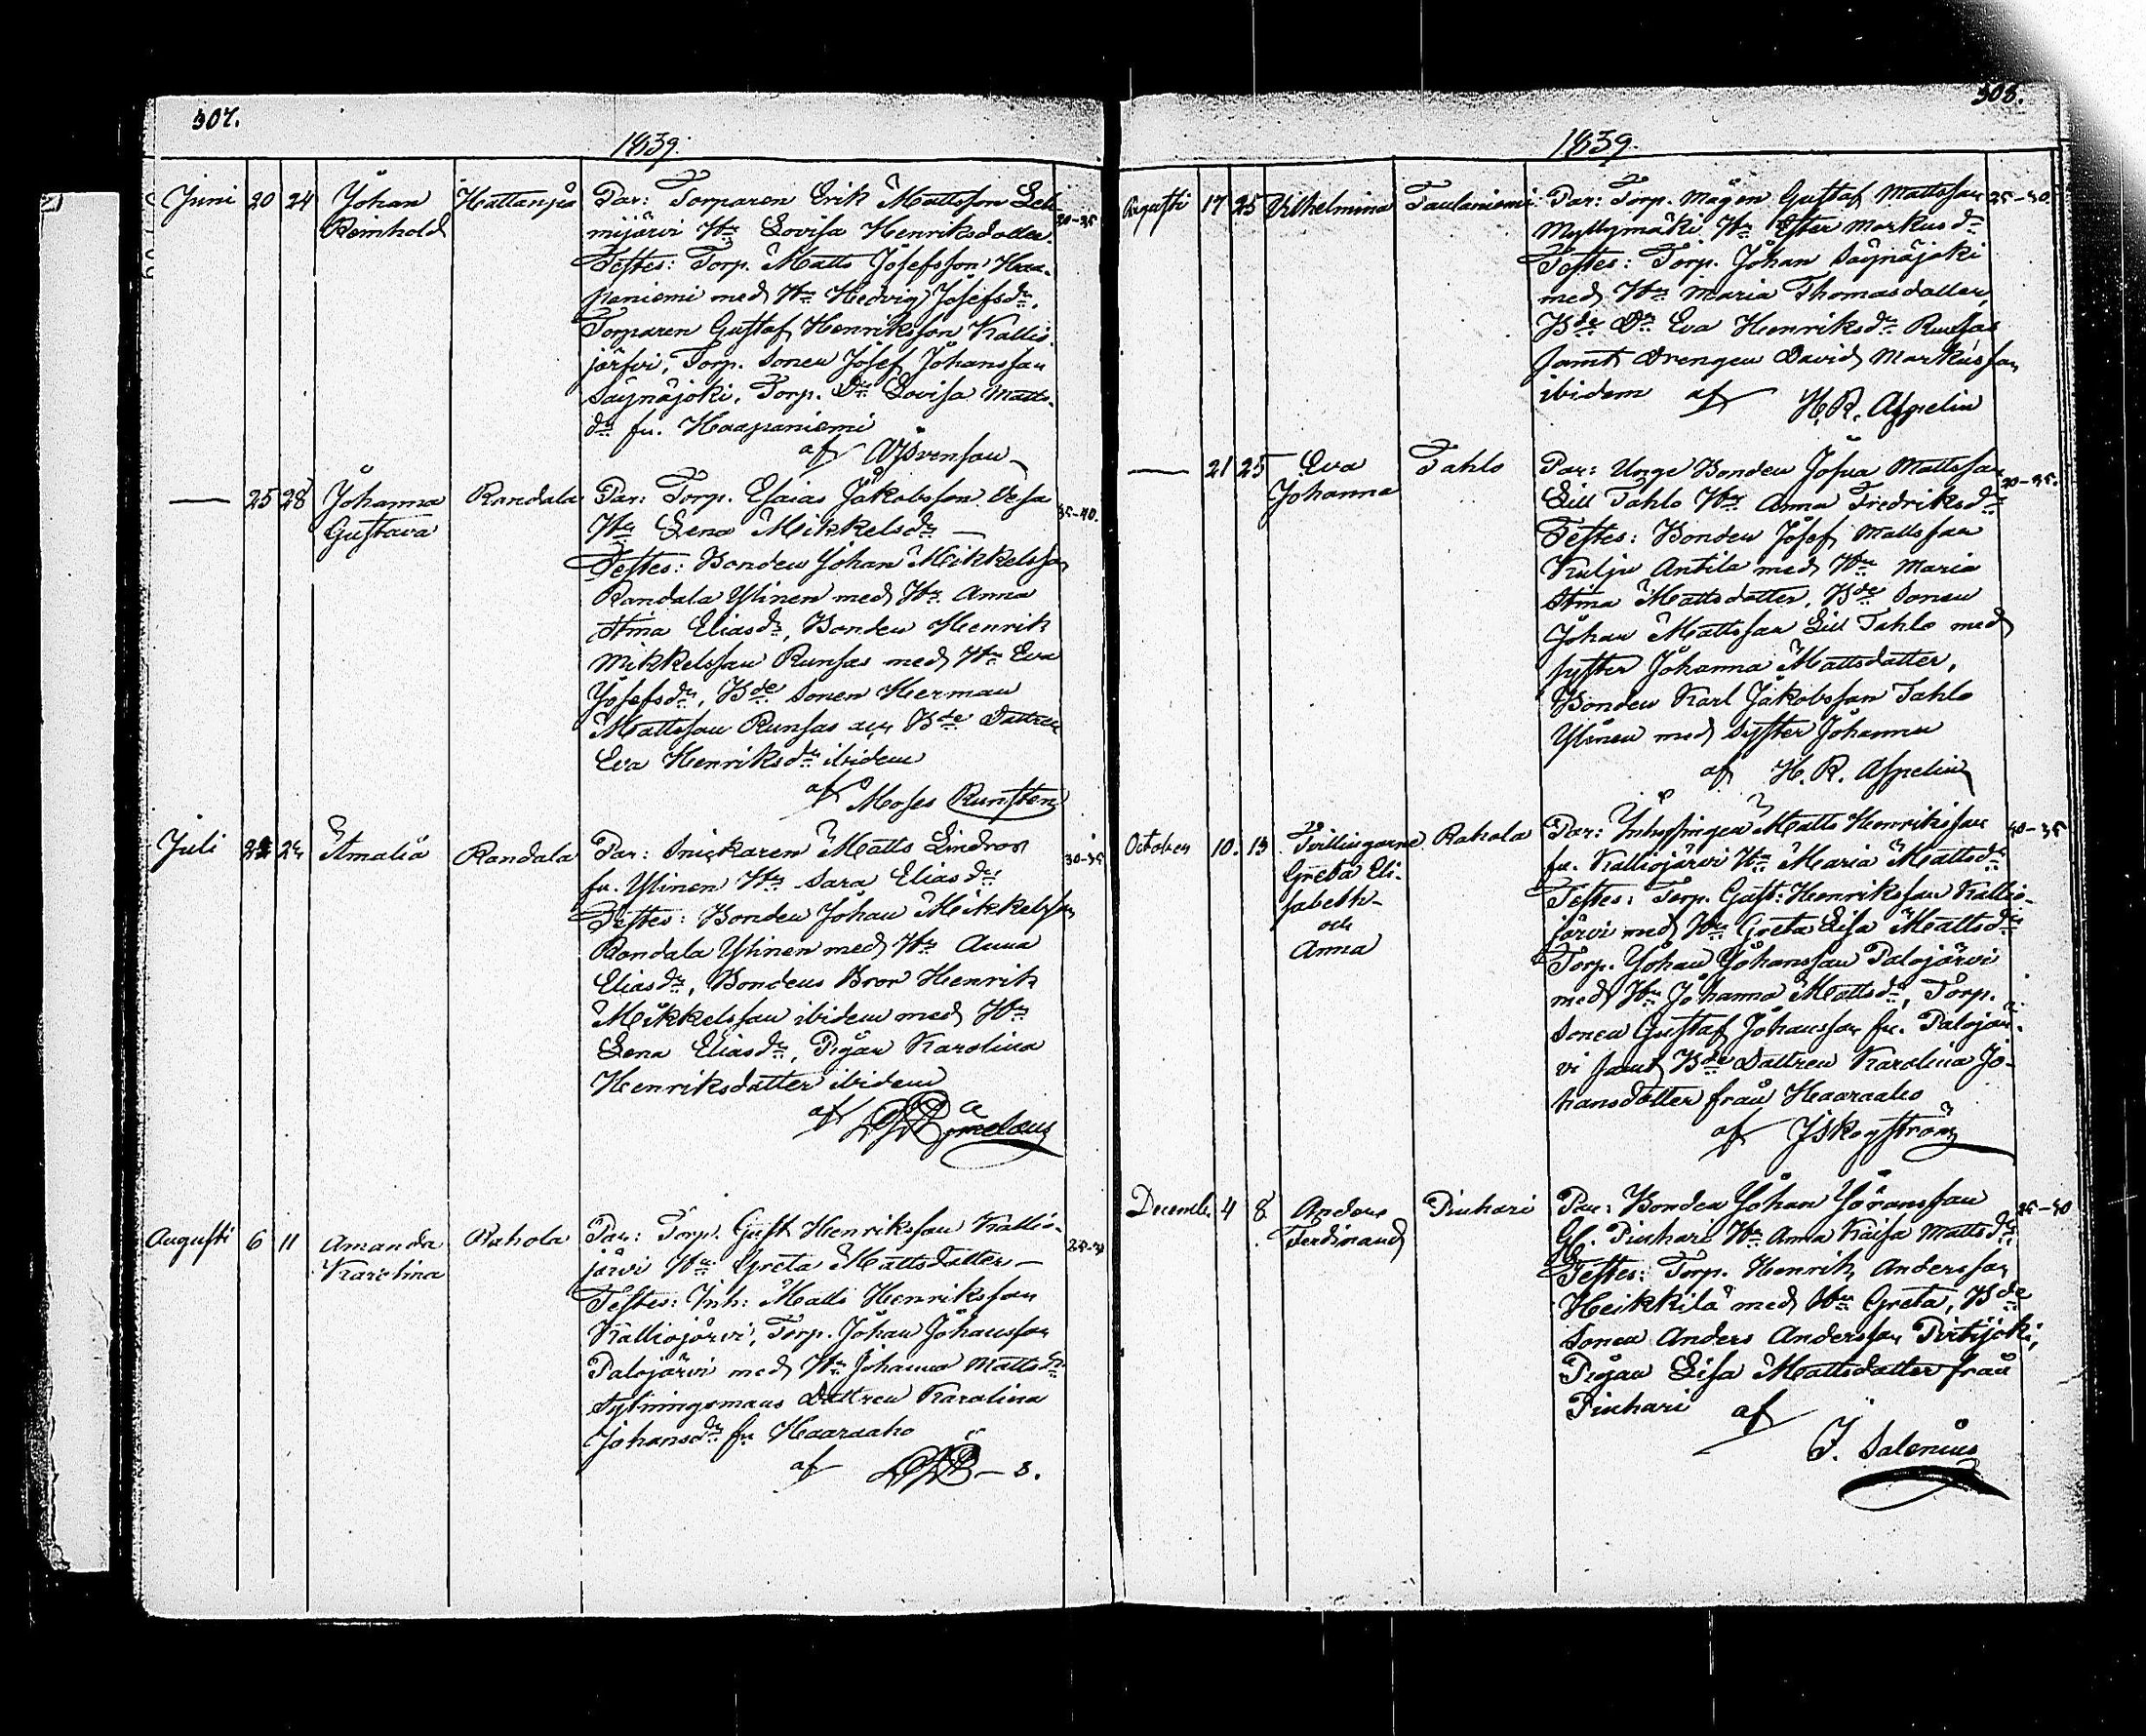 307.
1839.
Juni 20 24 Johan Hattanpä Par: Torparen Erik Mattsson Leh- 20-25
Reinhold mijärvi Hu Lovisa Henriksdotter.
Testes: Torp. Matts Josefsson Haa-
paniemi med Hu Hedvig Josefsdr,
Torparen Gustaf Henriksson Kallio-
järfvi, Torp. Sonen Josef Johansson
Säynäjoki, Torp. Dr Lovisa Matts-
dr fr. Haapaniemi
af
— 25 28 Johanna Randala Par: Torp. Esaias Jakobsson Vesa 35-40.
Gustava Hu Lena Mikkelsdr —
Testes: Bonden Johan Mikkelsson
Randala Ylinen med Hu Anna
Stina Eliasdr, Bonden Henrik
Mikkelsson Runsas med Hu Eva
Josefsdr, Bde Sonen Herman
Mattsson Runsas och Bde Dattren
Eva Henriksdr ibidem
af Moses Runsten
Juli 24 Amalia Randala Par: Snickaren Matts Lindros 30-35
fr. Ylinen Hu Sara Eliasdr
Testes: Bonden Johan Mikkelsson
Randala Ylinen med Hu Anna
Eliasdr, Bondens Bror Henrik
Mikkelsson ibidem med Hu
Lena Eliasdr, Pigan Karolina
Henriksdatter ibidem
af
Augusti 6 11 Amanda Rahola Par: Torp. Gust Henriksson Kallio-
Karolina järvi Hu Greta Mattsdatter —
Testes: Inh: Matts Henriksson
Kalliojärvi, Torp. Johan Johansson
Palojärvi med Hu Johanna Mattsdr
Dattren Karolina
Johansdr fr Haaraaho
af
308.
1839.
Augusti 17 25 Vilhelmina Taulaniemi Par: Torp. Mågen Gustaf Mattsson 25-30.
Myllymäki Hu Ester Markusdr
Testes: Torp. Johan Säynäjoki
med Hu Maria Thomasdatter,
Bde Dr Eva Henriksdr Runsas
samt Drengen David Markusson
ibidem af H. R. Aspelin
— 21 25 Eva Tahlo Par: Unge Bonden Josua Mattsson
Johanna Lill Tahlo Hu Anna Fredriksdr 30-35.
Testes: Bonden Josef Mattsson
Kulju Antila med Hu Maria
Stina Mattsdatter, Bde Sonen
Johan Mattsson Lill Tahlo med
syster Johanna Mattsdatter,
Bonden Karl Jakobsson Tahlo
Ylinen med Syster Johanna
af H. R. Aspelin
October 10. 13 Tvillingarne Rahola Par: Inhysingen Matts Henriksson 30-35
Greta Eli- fr. Kalliojärvi Hu Maria Mattsdr
sabeth Testes: Torp. Gust: Henriksson Kallio-
och järvi med Hu Greta Lisa Mattsdr
Anna Torp. Johan Johansson Palojärvi
med Hu Johanna Mattsdr, Torp.
Sonen Gustaf Johansson fr. Palojär-
vi samt Bde Dattren Karolina Jo-
hansdotter från Haaraaho
af
Decemb. 4 8 Anders Pinhari Par: Bonden Johan Göransson
Ferdinand Gl. Pinhari Hu Anna Kaisa Mattsdr
Testes: Torp. Henrik Andersson
Heikkilä med Hu Greta, Bde
Sonen Anders Andersson Pirtijoki,
Pigan Lisa Mattsdatter från
Pinhari af
J. Salenius